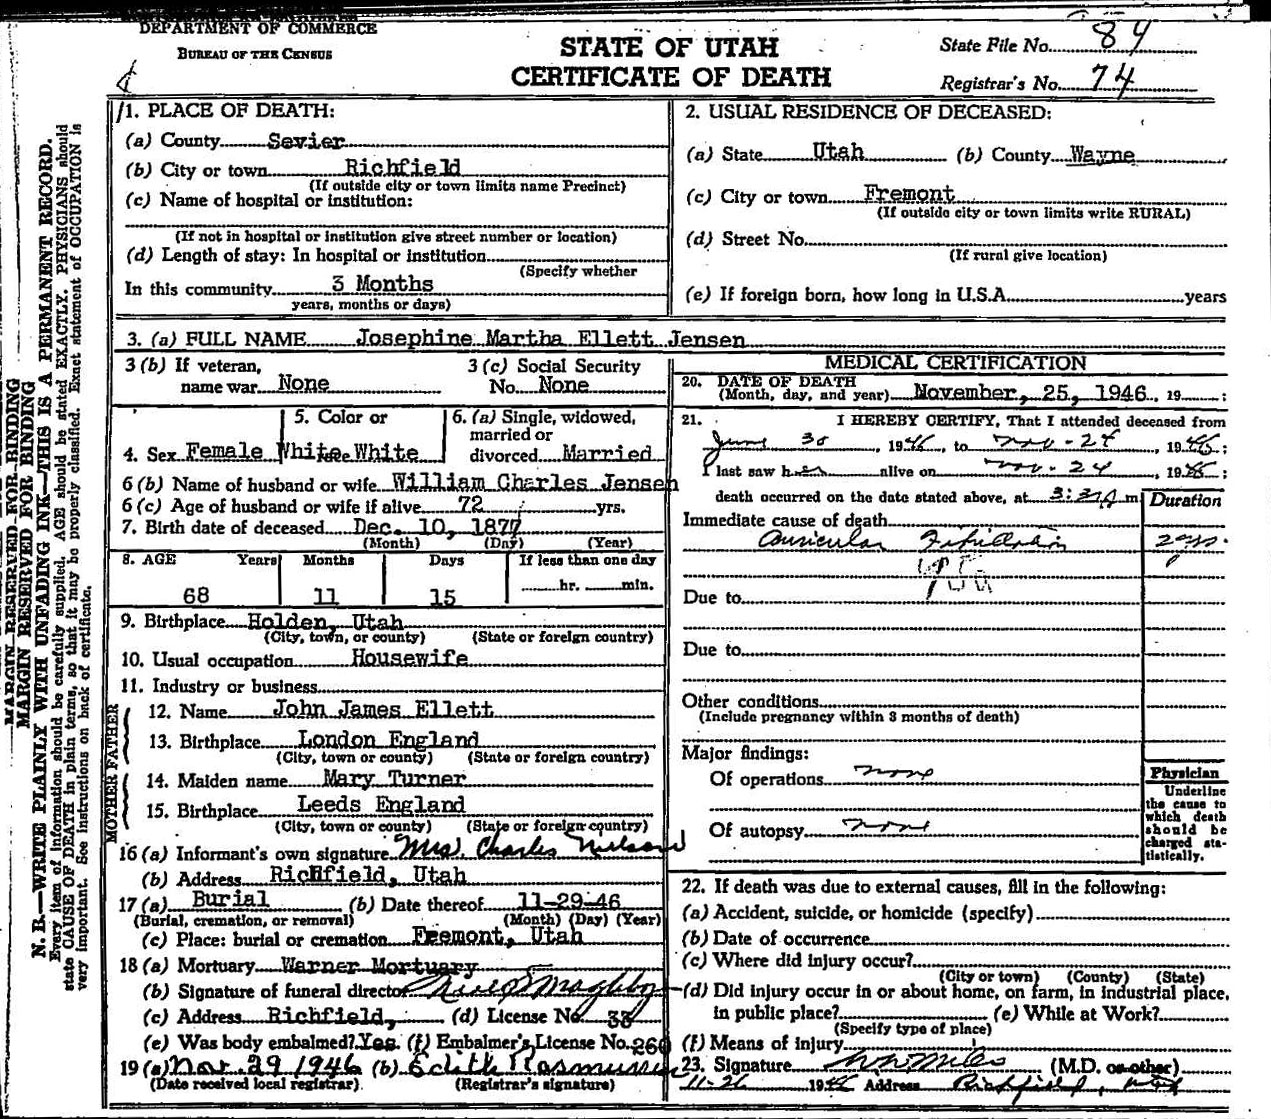 DEPARTMENT OF COMMERCE
BUREAU OF THE CENSUS
STATE OF UTAH
CERTIFICATE OF DEATH
State File No. 84
Registrar's No. 74
MARGIN RESERVED FOR BINDING
MARGIN RESERVED FOR BINDING
N. B.—WRITE PLAINLY WITH UNFADING INK—THIS IS A PERMANENT RECORD.
Every item of information should be carefully supplied. AGE should be stated EXACTLY. PHYSICIANS should
state CAUSE OF DEATH in plain terms, so that it may be properly classified. Exact statement of OCCUPATION is
very important. See instructions on back of certificate.
1. PLACE OF DEATH:
(a) County Sevier
(b) City or town Richfield
(If outside city or town limits name Precinct)
(c) Name of hospital or institution:
(If not in hospital or institution give street number or location)
(d) Length of stay: In hospital or institution
(Specify whether
In this community 3 Months
years, months or days)
2. USUAL RESIDENCE OF DECEASED:
(a) State Utah (b) County Wayne
(c) City or town Fremont
(If outside city or town limits write RURAL)
(d) Street No.
(If rural give location)
(e) If foreign born, how long in U.S.A. years
3. (a) FULL NAME Josephine Martha Ellett Jensen
3 (b) If veteran, name war None
3 (c) Social Security No. None
4. Sex Female
5. Color or White White
6. (a) Single, widowed, married or divorced Married
6 (b) Name of husband or wife William Charles Jensen
6 (c) Age of husband or wife if alive 72 yrs.
7. Birth date of deceased Dec. 10, 1877
(Month) (Day) (Year)
8. AGE Years Months Days If less than one day
68 11 15 hr. min.
9. Birthplace Holden, Utah
(City, town, or county) (State or foreign country)
10. Usual occupation Housewife
11. Industry or business
FATHER
12. Name John James Ellett
13. Birthplace London England
(City, town or county) (State or foreign country)
MOTHER
14. Maiden name Mary Turner
15. Birthplace Leeds England
(City, town or county) (State or foreign country)
16 (a) Informant's own signature Mrs. Charles Nielson
(b) Address Richfield, Utah
17 (a) Burial (b) Date thereof 11-29-46
(Burial, cremation, or removal) (Month) (Day) (Year)
(c) Place: burial or cremation Fremont, Utah
18 (a) Mortuary Warner Mortuary
(b) Signature of funeral director
(c) Address Richfield, (d) License No. 33
(e) Was body embalmed? Yes. (f) Embalmer's License No. 260
19 (a) Nov. 29 1946 (b) Edith Rasmussen
(Date received local registrar) (Registrar's signature)
MEDICAL CERTIFICATION
20. DATE OF DEATH
(Month, day, and year) November, 25, 1946, 19 ;
21. I HEREBY CERTIFY, That I attended deceased from
June 30, 1946, to Nov-24, 1946;
I last saw her alive on Nov-24, 1946;
death occurred on the date stated above, at m
Duration
Immediate cause of death
Auricular Fibrillation 2 yrs.
Due to
Due to
Other conditions
(Include pregnancy within 3 months of death)
Major findings:
Of operations none
Of autopsy none
Physician
Underline
the cause to
which death
should be
charged sta-
tistically.
22. If death was due to external causes, fill in the following:
(a) Accident, suicide, or homicide (specify)
(b) Date of occurrence
(c) Where did injury occur?
(City or town) (County) (State)
(d) Did injury occur in or about home, on farm, in industrial place,
in public place? (e) While at Work?
(Specify type of place)
(f) Means of injury
23. Signature (M.D. or other)
11-26 1946 Address Richfield, Utah